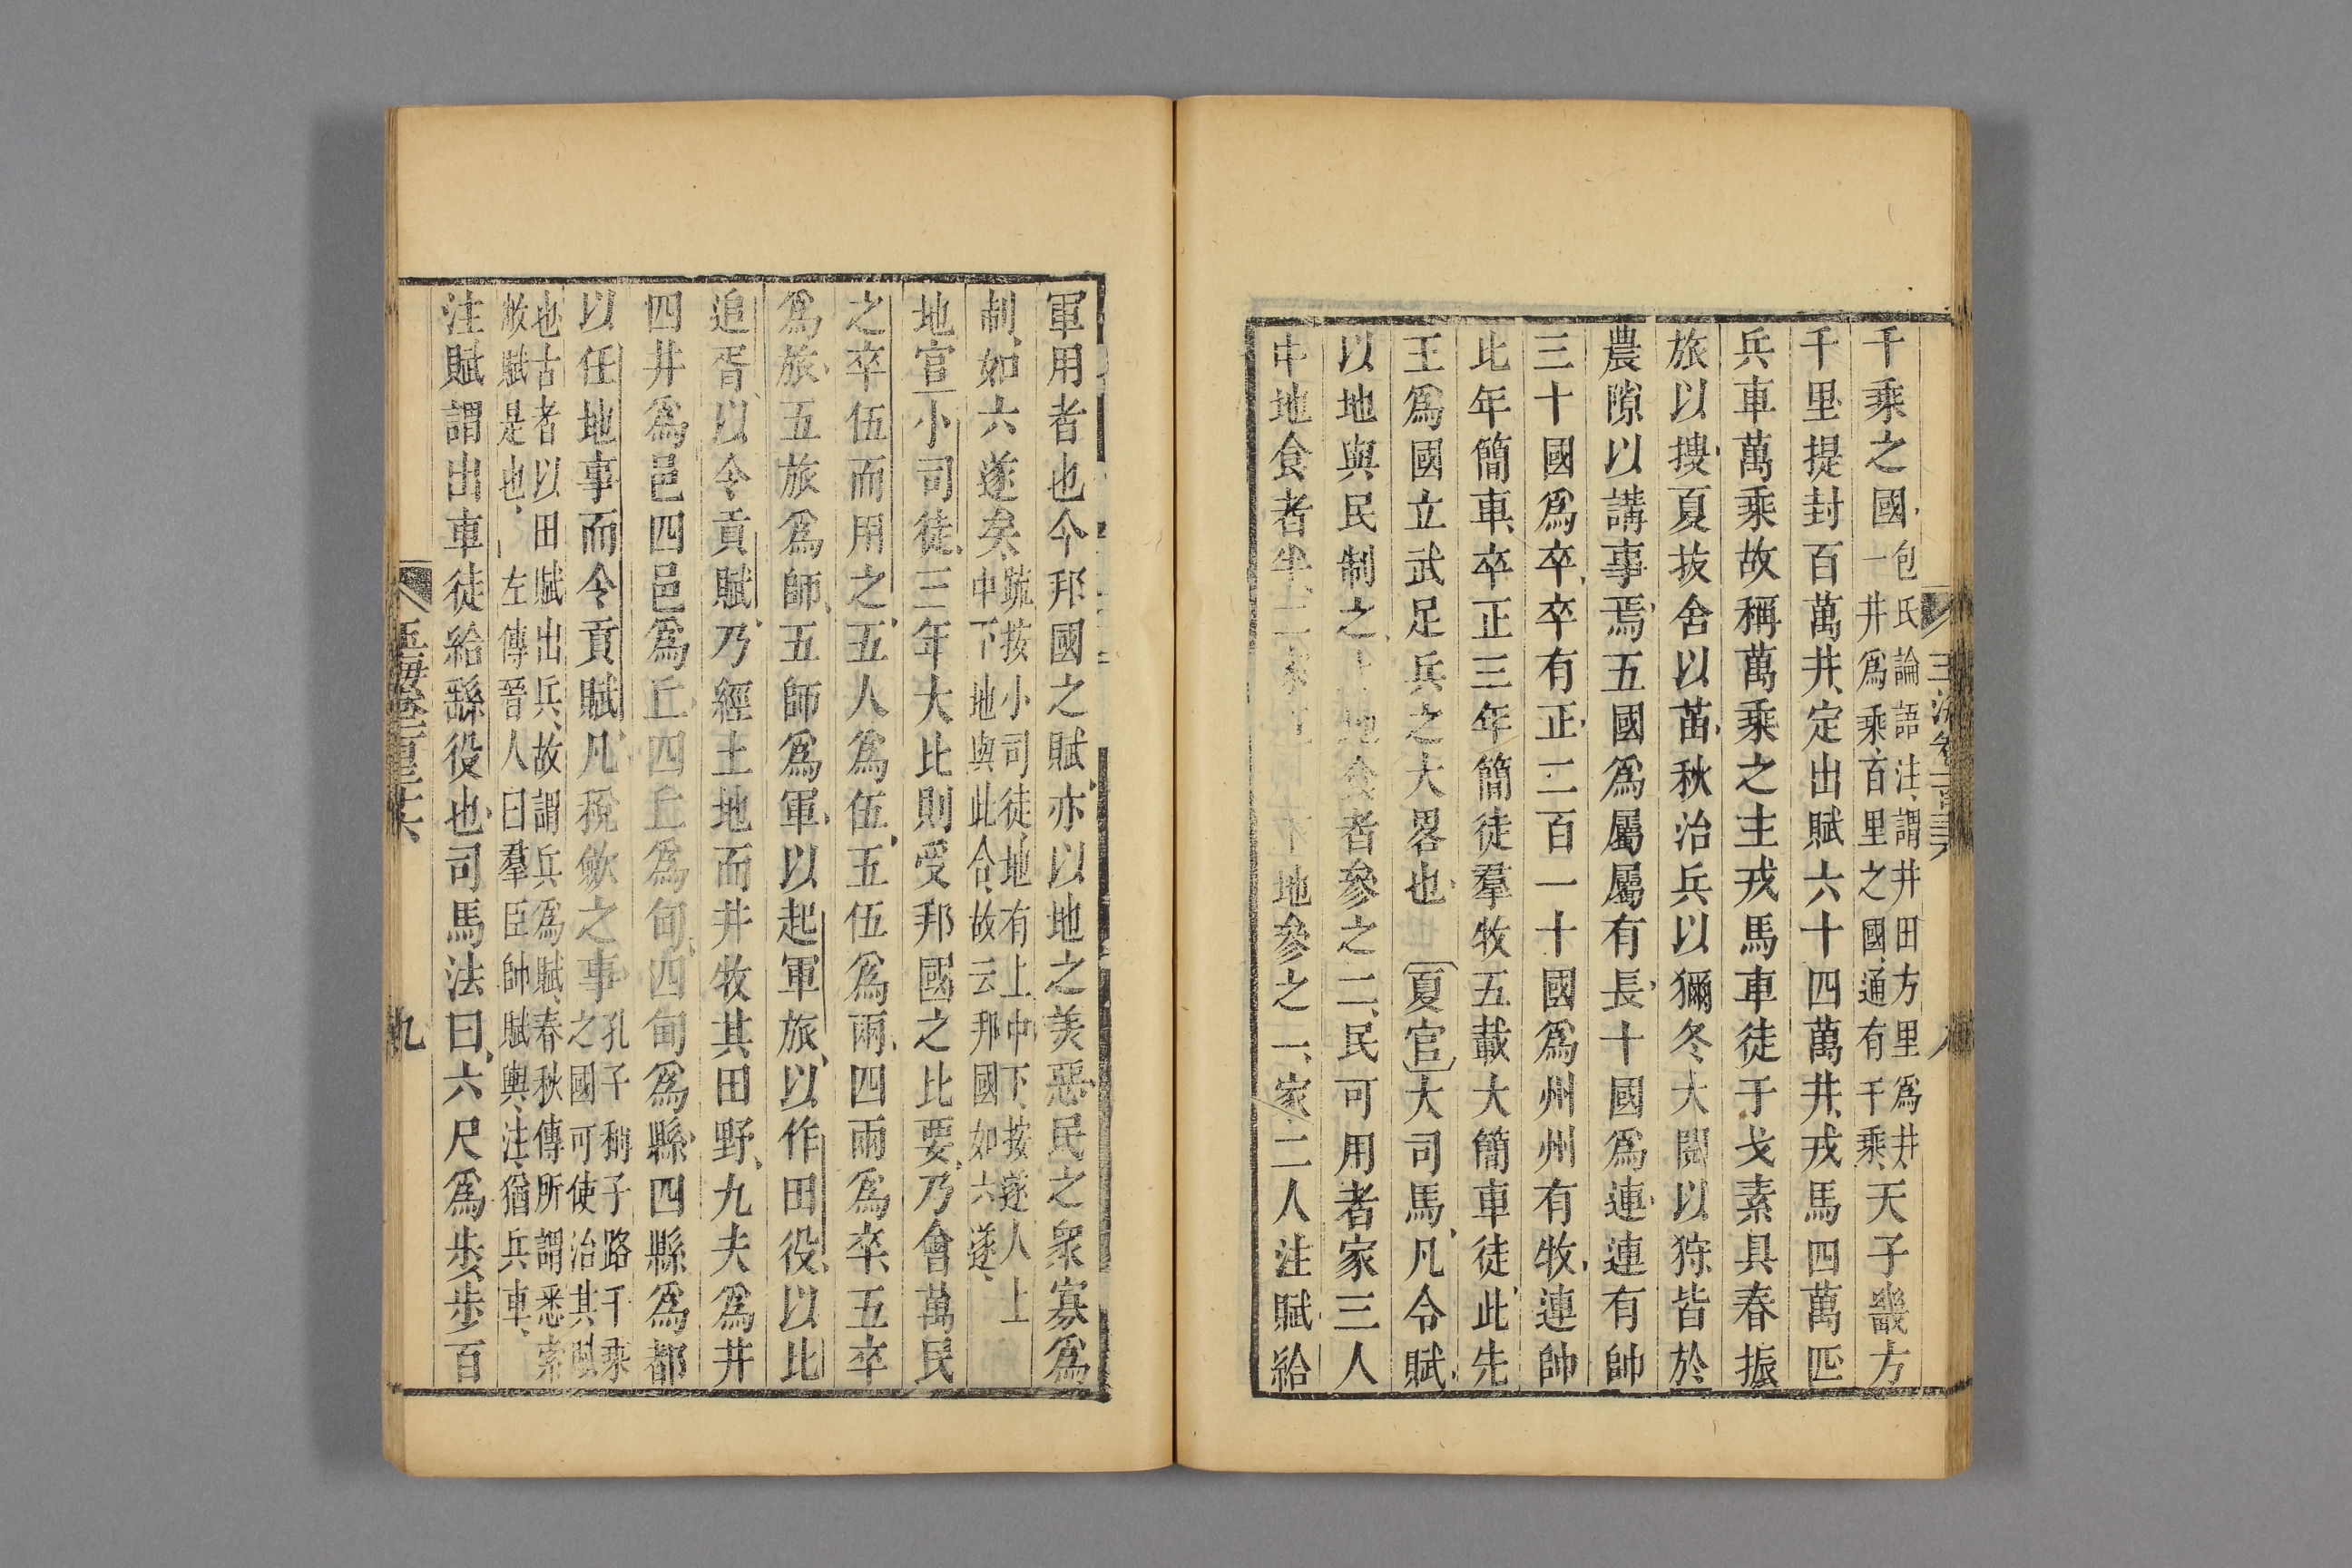 千乘之國包氏論語注謂井田方里爲井天子畿方
一井爲乘百里之國通有千乘
千里提封百萬井定出賦六十四萬井戎馬四萬匹
兵車萬乘故稱萬乘之主戎馬車徒于戈素具春振
旅以搜夏抜舍以苗秋治兵以獮冬大閱以狩皆於
農隙以講事焉五國爲屬屬有長十國爲連連有帥
三十國爲卒卒有正二百一十國爲州州有牧連帥
比年簡車卒正三年簡徒羣牧五載大簡車徒此先
王爲國立武足兵之大畧也夏官大司馬凡令賦
以地與民制之地食者參之二民可用者家三人
中地食者半地參之一家二人注賦給
軍用者也今邦國之賦亦以地之美惡民之衆寡爲
制如六遂矣疏按小司徒地有上中下按遂人上
中下地與此合故云邦國如六遂
地官小司徒三年大比則受邦國之比要乃會萬民
之卒伍而用之五人爲伍五伍爲兩四兩爲卒五卒
爲旅五旅爲師五師爲軍以起軍旅以作田役以比
追胥以令貢賦乃經土地而井牧其田野九夫爲井
四井爲邑四邑爲丘四丘爲甸四甸爲縣四縣爲都
以任地事而令貢賦凡稅斂之事孔子稍子路千乘
之國可使治其賦
也古者以田賦出兵故謂兵爲賦春秋傳所謂悉索
敝賦是也左傳晉人曰羣臣帥賦輿注猶兵車
注賦謂出車徒給繇役也司馬法曰六尺爲步步百
九